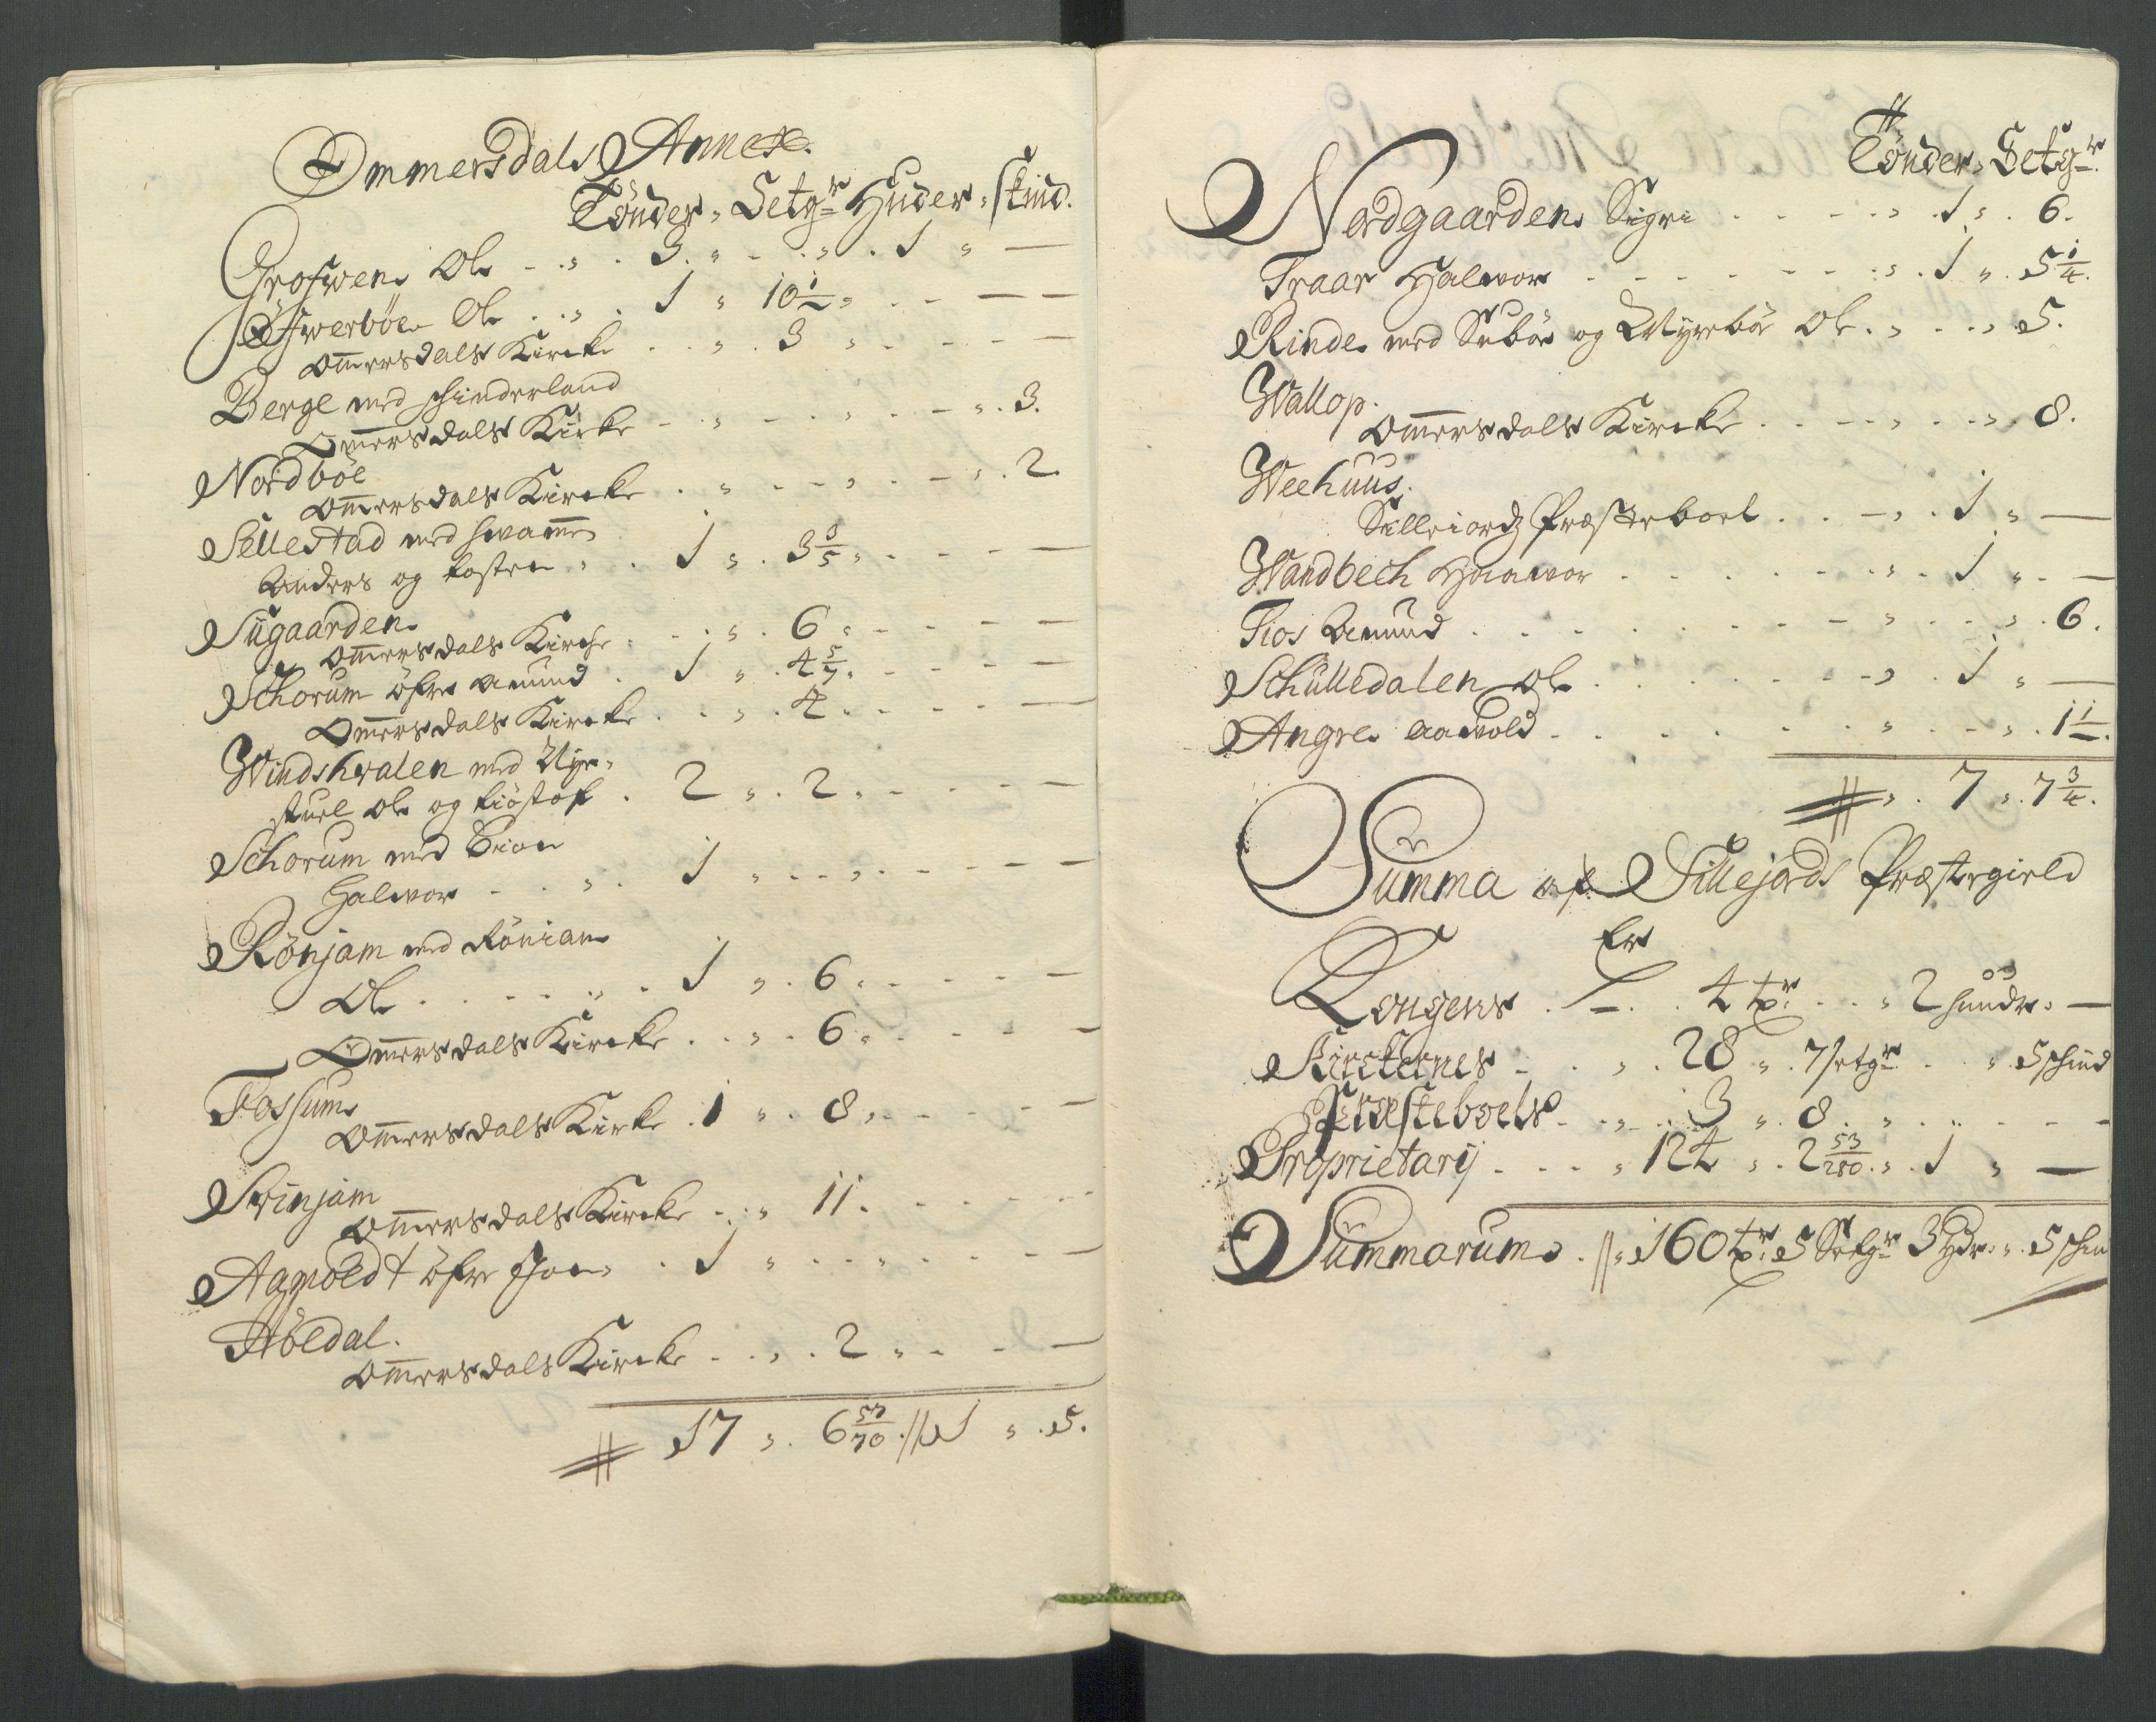 Ommersdals Annex.
Tönder, Setgr Huder, Skind.
Grofwen Ole - . „ . 3. „ - . „ . 1 „ —
Öfwerböe Ole . . „ . 1 „ 10 1/2 „ . - — —
Omersdals Kircke . . „ . 3 „ . - - - —
Berge med Hinderland
Omersdals Kircke - . „ - . „ . - „ . 3.
Nordböe
Omersdals Kircke . „ . - „ . - „ . 2.
Sellestad med
Anders og „ . 1 „ . 3 3/5 „ . - - —
Sügaarden
Omersdals Kirche . - . „ . 6 „ - - - —
Schorum öfre Amund . 1 „ . 4 5/7 „ - - - —
Omersdals Kircke . . „ . 4 . - - - —
Windshwalen med Nye„
stuel Ole og Kiöstol . 2 „ . 2 „ - - - —
Schorum med
Halwor - . . „ . 1 „ . . „ . - - —
Rönjam med Röniam
Ole . . . . „ . 1 „ . 6 „ - - - —
Omersdals Kircke . . „ . 6 „ - - - —
Fossum
Omersdals Kircke . 1 „ . 8 „ - - - —
Svinjam
Omersdals Kircke - . „ 11 . - - - -
öfre Jon „ . 1 „ . . „ . - —
Höldal.
Omersdals Kircke - . „ . 2 „ - - —
# 17 „ . 6 57/70 .//. 1 „ . 5.
Tönder, Setgr
Nordgaarden Sigri . . - . - „ . 1 „ . 6.
Traar Halwor - - - - - - - . „ . 1 „ . 5 1/4.
Rinde med Nuböe og Myreböe Ole . „ . . „ . 5.
Wallop.
Omersdals Kircke . . - - „ . . „ . 8.
Weehuus.
Sillejordz Præsteboel . . - „ . 1 „ —
Wandbech Haawor . . . . . . „ . 1 „ . —
Fios Amund . . . - . - - - „ . . „ . 6.
Schülledalen Ole . . . . . . - „ . 1 „ —
Angre Aawold - . . . . . . „ . - „ . 1 1/2.
# „ . 7 „ . 7 3/4.
Summa af Sillejords Præstegield
Er
Kongens . — . 4 tr . . „ 2 hudr „ —
Kirckernes - . „ . 28 „ . 7 setgr . . „ . 5 schind
Præsteboels . . „ . 3 „ . 8 . „ . . . - - —
Proprietarij . . . „ 124 „ . 2 53/280 . „ . 1 „ —
Summarum . // „ 160 tr 5 Setgr 3 Hdr „ . 5 schin